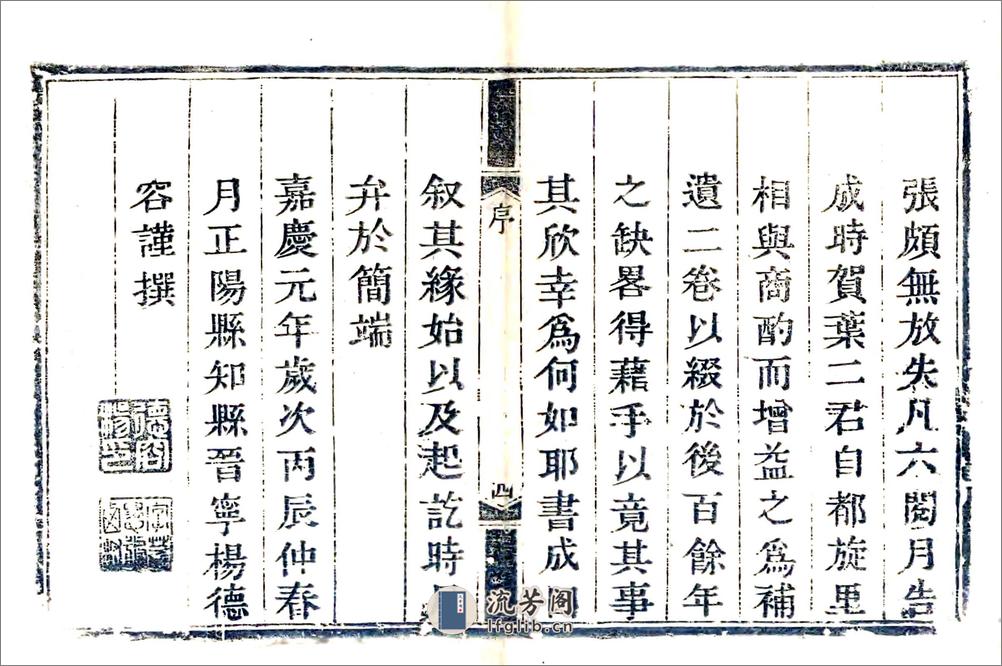 張頗無放失凡六閱月告
成時賀葉二君自都旋里
相與商酌而增益之爲補
遺二卷以綴於後百餘年
之缺畧得藉手以竟其事
其欣幸爲何如耶書成因
序
四
叙其緣始以及起訖時
弁於簡端
嘉慶元年歲次丙辰仲春
月正陽縣知縣晉寧楊德
容謹撰
流芳阁
lfglib.cn